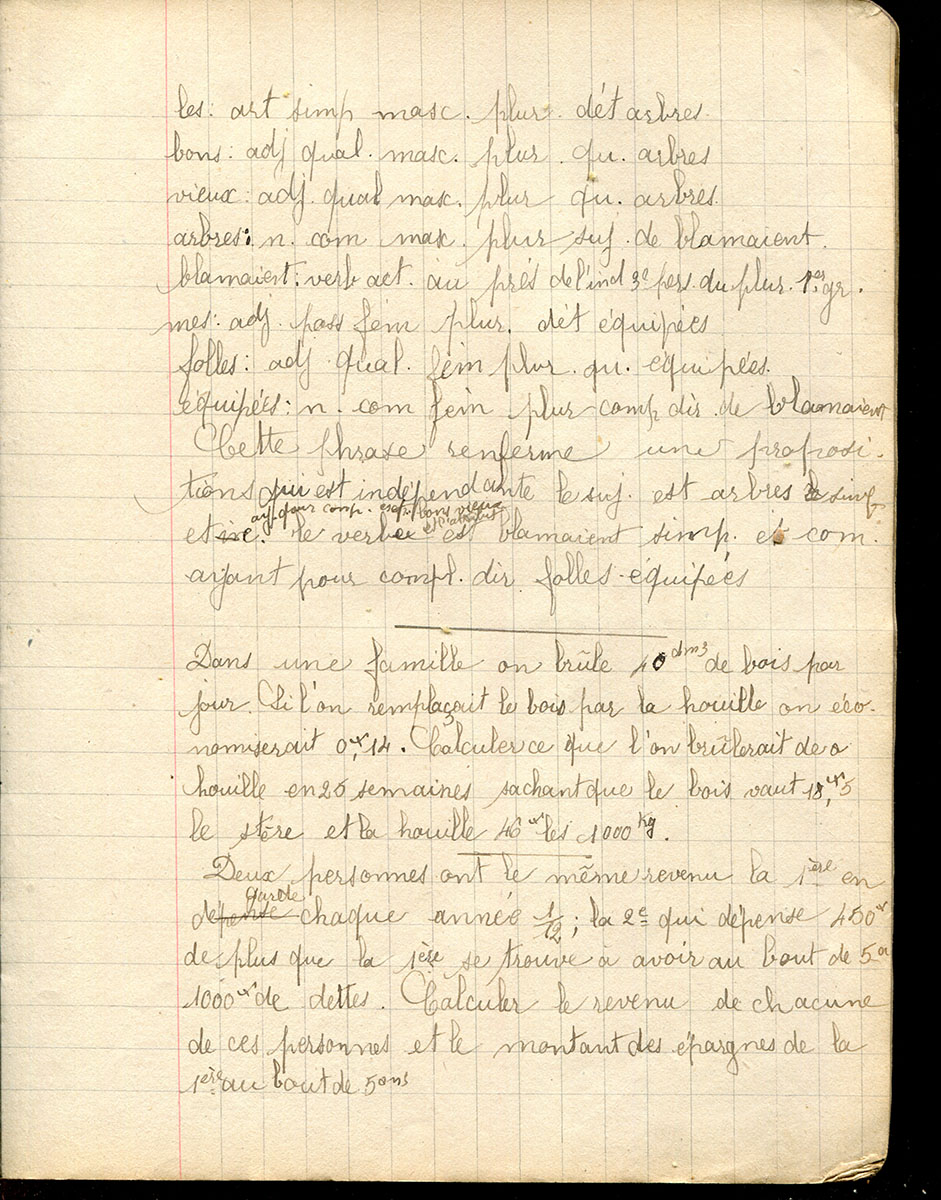 les: art simp masc. plur. dét arbres.
bons: adj qual. masc. plur. qu. arbres
vieux: adj. qual masc. plur qu. arbres.
arbres: n. com masc. plur suj. de blamaient.
blamaient: verb act. au prés de l'ind 3e pers. du plur. 1er gr.
mes: adj. poss fém plur. dét équipées
folles: adj qual. fém plur. qu. équipées.
équipées: n. com fém plur comp dir. de blamaient
Cette phrase renferme une proposi-
tions qui est indépendante le suj. est arbres
ay. pour comp. bons vieux
est le verbe est blamaient simp. et com.
ayant pour compl. dir folles équipées
Dans une famille on brûle 40 dm3 de bois par
jour. Si l'on remplaçait le bois par la houille on éco-
nomiserait 0,fr14. Calculer ce que l'on brûlerait de
houille en 25 semaines sachant que le bois vaut 18,fr5
le stère et la houille 46fr les 1000 kg.
Deux personnes ont le même revenu la 1ère en
garde
dépense chaque année 1/12; la 2e qui dépense 450fr
de plus que la 1ère se trouve à avoir au bout de 5a
1000fr de dettes. Calculer le revenu de chacune
de ces personnes et le montant des épargnes de la
1ère au bout de 5 ans